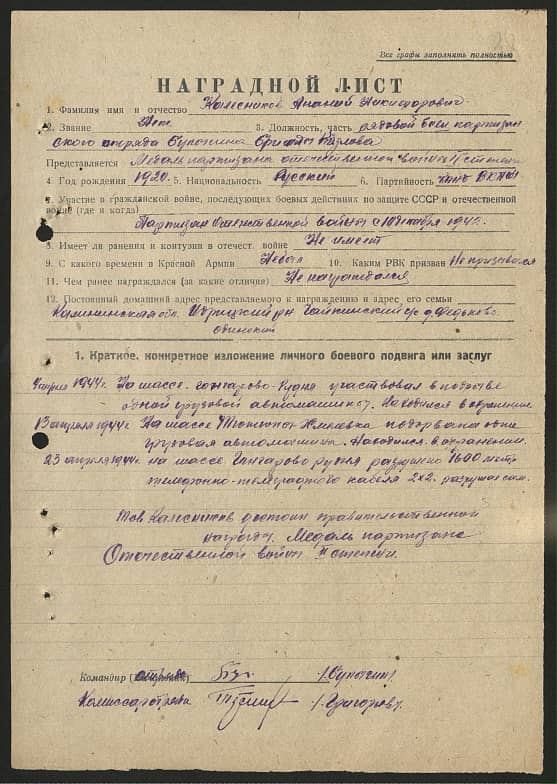 Все графы заполнить полностью
НАГРАДНОЙ ЛИСТ
1. Фамилия имя и отчество Колесников Ананий Никифорович
2. Звание 3. Должность, часть рядовой боец партизан
ского отряда бригады
Представляется Медаль партизана отечественной войны II степени
4 Год рождения 1920. 5. Национальность Русский 6. Партийность ВКП(б)
7. Участие в гражданской войне, последующих боевых действиях по защите СССР и отечественной
войне (где и когда)
Партизан Отечественной войны с 194 г.
8. Имеет ли ранения и контузии в отечест. войне Не имеет
9. С какого времени в Красной Армии Не был 10. Каким РВК призван Не призывался
11. Чем ранее награждался (за какие отличия) Не награждался
12. Постоянный домашний адрес представляемого к награждению и адрес, его семьи
Калининская обл. Идрицкий р-н с/с д. Федьково
одинокий
1. Краткое, конкретное изложение личного боевого подвига или заслуг
апреля 1944 г. На шассе участвовал в подрыве
одной грузовой автомашины. Находился в охранении
13 апреля 1944 г. На шассе подорвана одна
грузовая автомашина. Находился в охранении.
23 апреля 1944 г. на шассе Гончарово Рудня разрушено 1600 метр
телефонно-телеграфного кабеля 2х2. разрушал сам.
Тов Колесников достоин правительственной
награды. Медаль партизана
Отечественной войны II степени.
Командир отряда
Комиссар отряда /Григорьев/